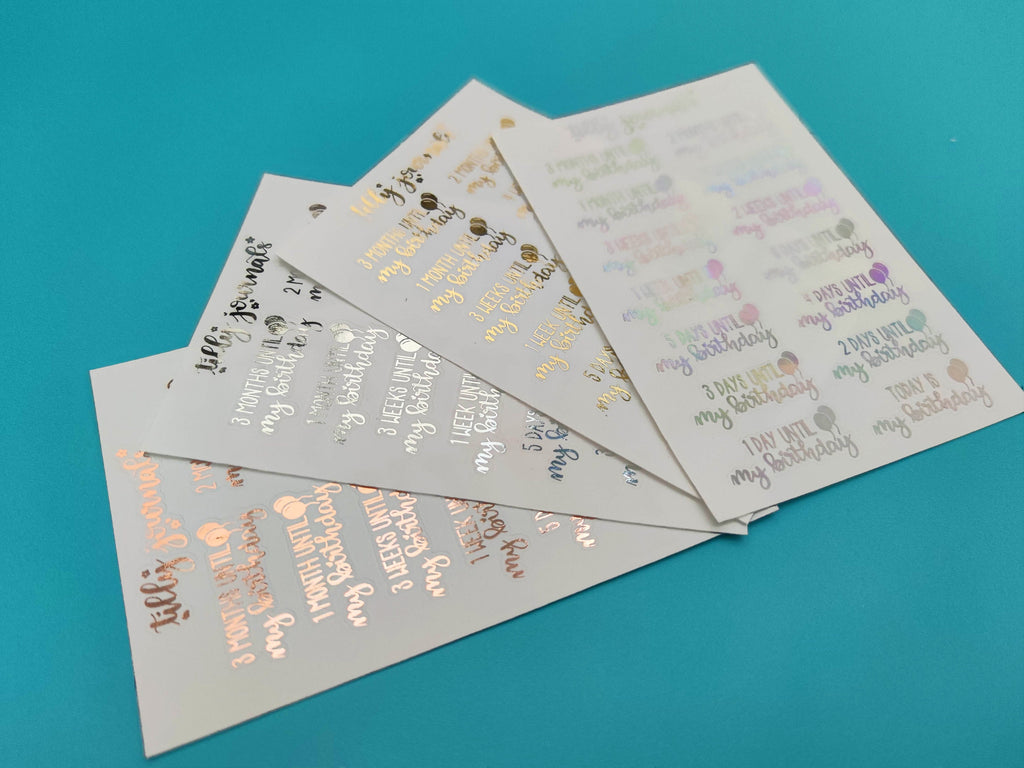 tilly journals
3 MONTHS UNTIL
my birthday
1 MONTH UNTIL
my birthday
3 WEEKS UNTIL
my
1 WEEK UNTIL
my
5 D
my
2 M
tilly journals
3 MONTHS UNTIL
my birthday
1 MONTH UNTIL
my birthday
3 WEEKS UNTIL
my birthd
1 WEEK UNTIL
my birth
5 DAY
my
2 M
tilly journals
3 MONTHS UNTIL
my birthday
1 MONTH UNTIL
my birthday
3 WEEKS UNTIL
my birthday
1 WEEK UNTIL
my birthday
5 DAYS
my
2 MONTHS UNTIL
my birthday
3 MONTHS UNTIL
my birthday
1 MONTH UNTIL
my birthday
3 WEEKS UNTIL
my birthday
2 WEEKS UNTIL
my birthday
1 WEEK UNTIL
my birthday
my birthday
5 DAYS UNTIL
my birthday
4 DAYS UNTIL
my birthday
3 DAYS UNTIL
my birthday
2 DAYS UNTIL
my birthday
1 DAY UNTIL
my birthday
TODAY IS
my birthday